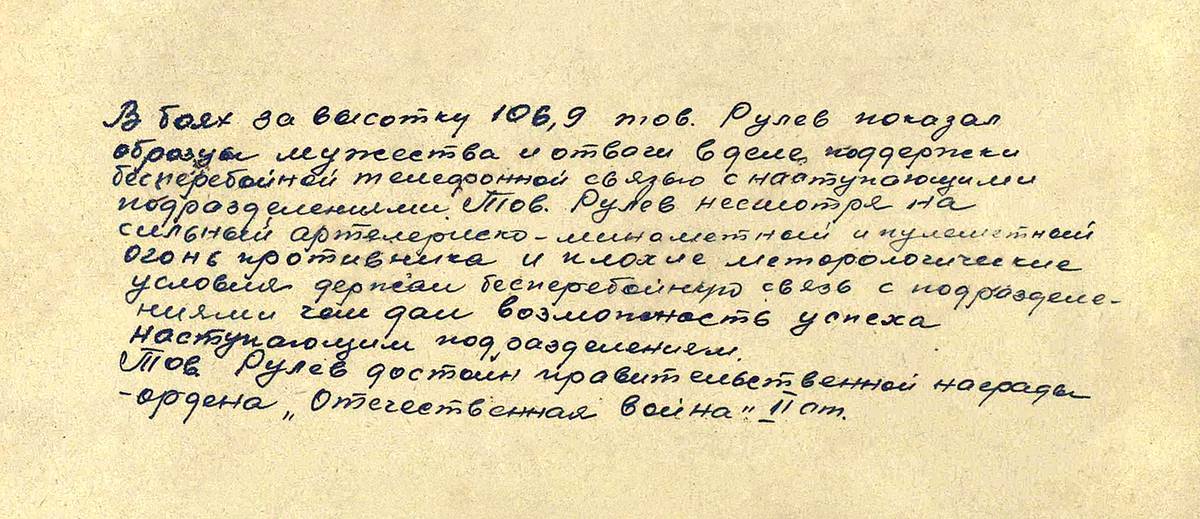 В боях за высотку 106,9 тов. Рулев показал
образцы мужества и отваги в деле поддержки
бесперебойной телефонной связью с наступающими
подразделениями. Тов. Рулев несмотря на
сильный артелериско-минаметный и пулеметной
огонь противника и плохие меторологические
условия держал бесперебойную связь с подразделе-
ниями чем дал возможность успеха
наступающим подразделениям.
Тов. Рулев достоин правительственной награды
-ордена „Отечественная война" II ст.